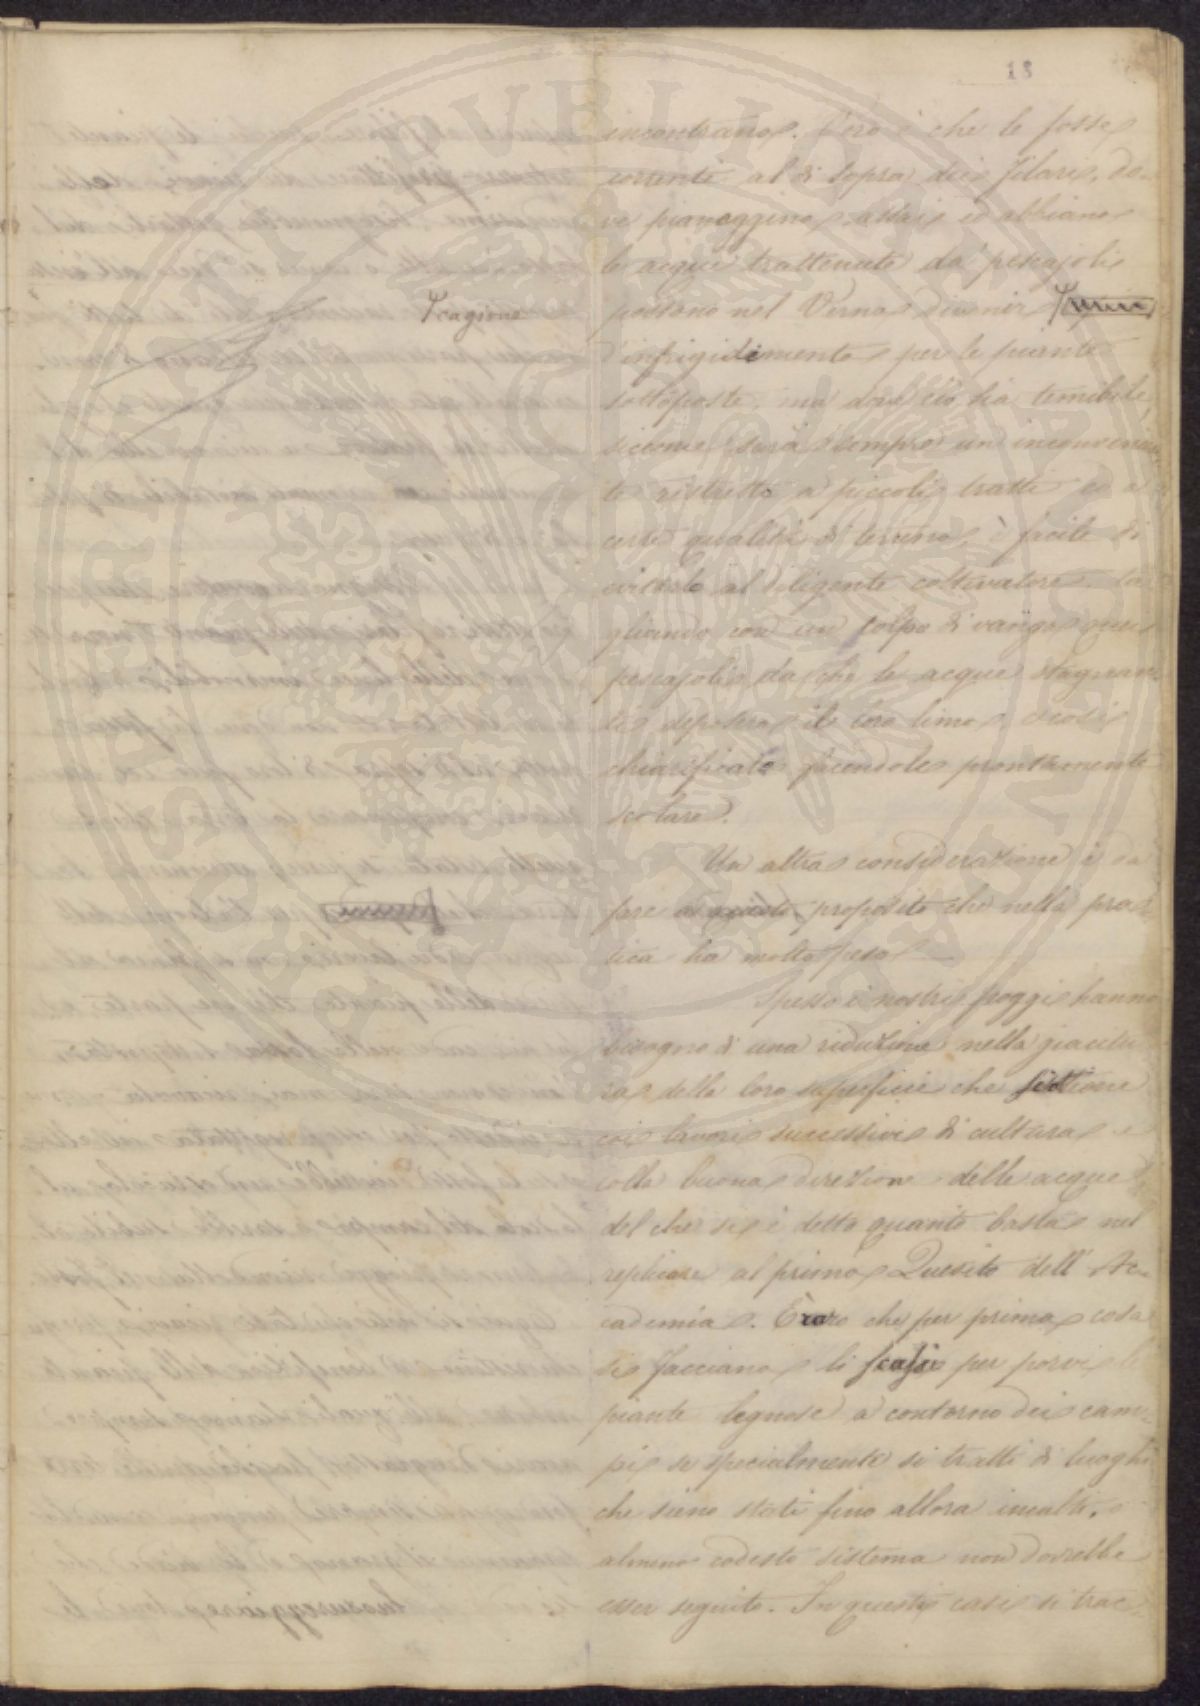 18
incontrano. Vero è che le fosse
correnti al di sopra dei filari, do-
ve pianeggino assai ed abbiano
le acque trattenute da' pescajoli
possono nel Verno divenir
cagione
d'infrigidimento per le piante
sottoposte, ma dove ciò sia temibile,
siccome sarà sempre un inconvenien-
te ristretto a piccoli tratti ed a
certe qualità di terreno, è facile di
evitarlo al diligente coltivatore ta-
gliando con un colpo di vanga quei
pescajoli, da che le acque stagnan-
ti deposero il loro limo, e così
chiarificate facendole prontamente
scolare.
Un altra considerazione è da
fare a questo proposito che nella pra-
tica ha molto peso
Spesso i nostri poggi hanno
bisogno di una riduzione nella giacitu
ra della loro superficie che si ottiene
coi lavori successivi di cultura e
colla buona direzione delle acque
del che si è detto quanto basta nel
replicare al primo Quesito dell'Ac-
cademia. È raro che per prima cosa
si facciano li scassi per porvi le
piante legnose a contorno dei cam-
pi se specialmente si tratti di luoghi
che sieno stati fino allora incolti, o
almeno codesto sistema non dovrebbe
esser seguito. In questi casi si trac-